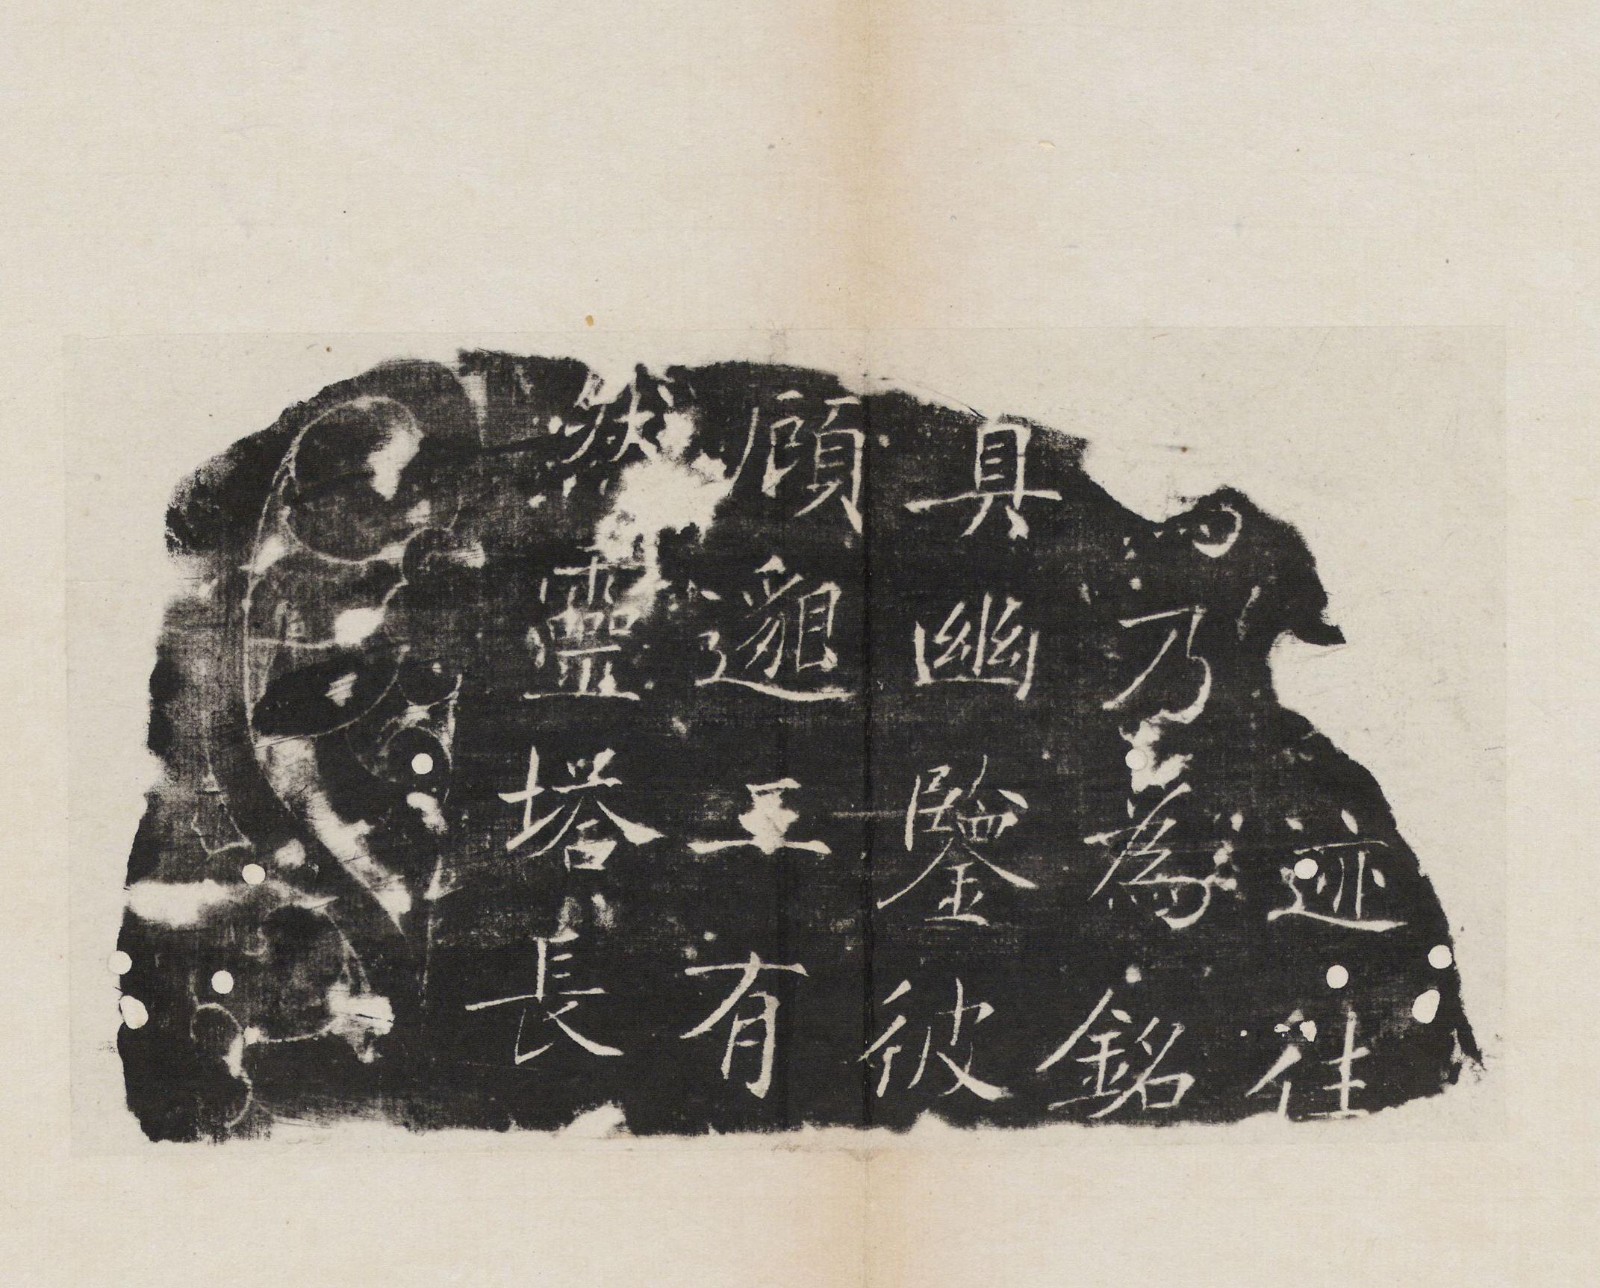 迹往
乃為銘
具幽鑒彼
顧邈有
然靈塔長